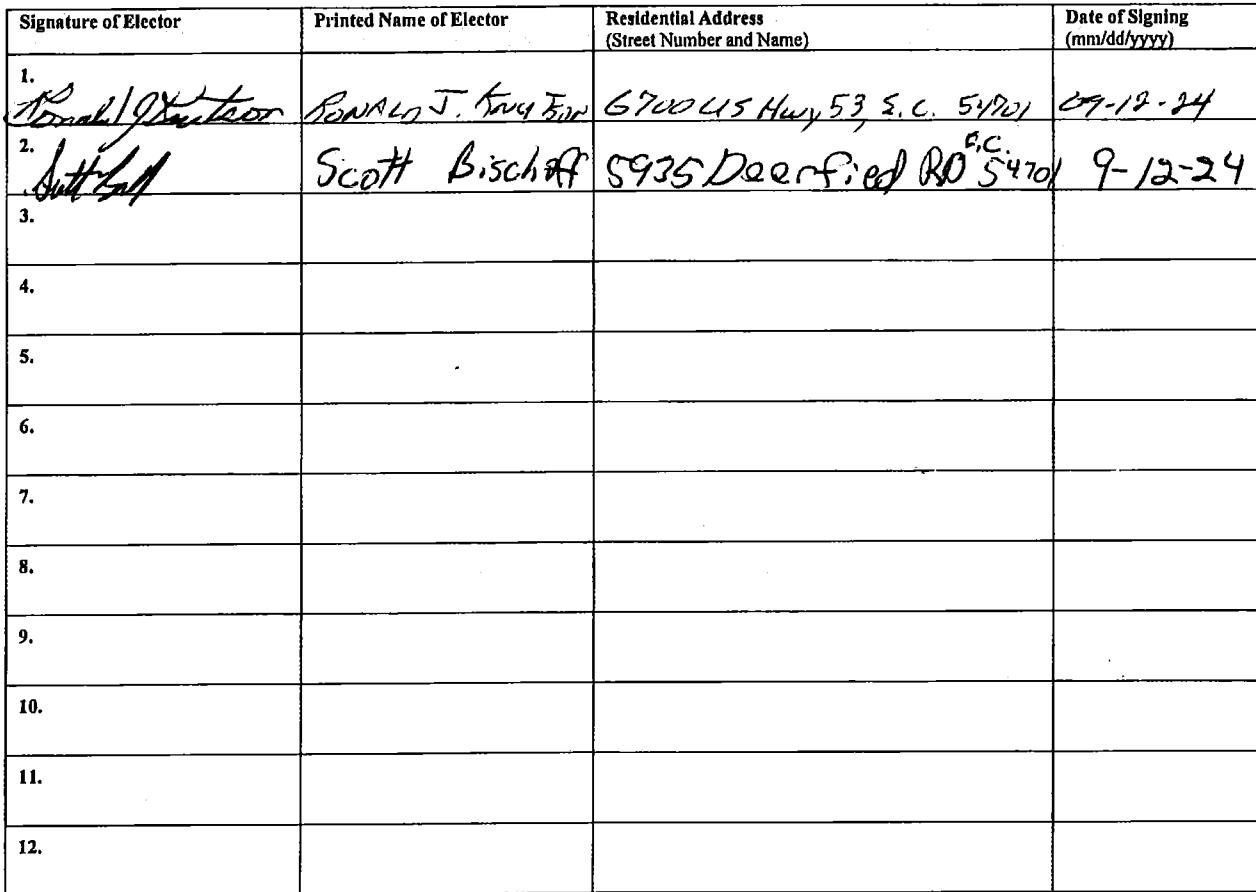 Signature of Elector Printed Name of Elector Residential Address Date of Signing
(Street Number and Name) (mm/dd/yyyy)
1.
Ronald J Knutson RONALD J. Knutson 6700 US Hwy 53, E.C. 54701 09-12-24
2. E.C.
Scott Bischoff 5935 Deerfied RD 54701 9-12-24
3.
4.
5.
6.
7.
8.
9.
10.
11.
12.